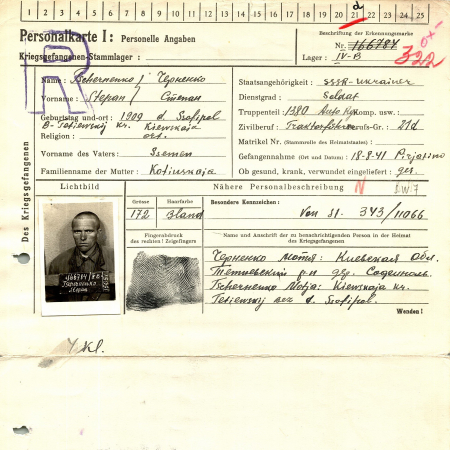 1 2 3 4 5 6 7 8 9 10 11 12 13 14 15 16 17 18 19 20 21 22 23 24 25
Personalkarte I: Personelle Angaben
Kriegsgefangenen-Stammlager :
Beschriftung der Erkennungsmarke
Nr. 166784
Lager : IV-B
322
R
Des Kriegsgefangenen
Name : Tschernenko / Черненко
Vorname : Stepan / Степан
Geburtstag und -ort : 1909 d. Sofipol
Kiewskaja
Religion :
Vorname des Vaters : Ssemen
Familienname der Mutter :
Staatsangehörigkeit : SSSR - Ukrainer
Dienstgrad : Soldat
Truppenteil : 1380 Auto Komp. usw. :
Zivilberuf : Berufs-Gr. : 21d
Matrikel Nr. (Stammrolle des Heimatstaates) :
Gefangennahme (Ort und Datum) : 18-8-41 Pirjatino
Ob gesund, krank, verwundet eingeliefert : ges.
Lichtbild
Nähere Personalbeschreibung
Grösse
172
Haarfarbe
Bland
Besondere Kennzeichen :
Von St. 343/11066
Fingerabdruck
des rechten ! Zeigefingers
Name und Anschrift der zu benachrichtigenden Person in der Heimat
des Kriegsgefangenen
Черненко Мотя: Киевская обл.
Тетиевский р-н дер.
Tschernenko Motja: Kiewskaja kr.
Tetiewskij bez d. Sofipol.
Wenden !
166784
Tschernenko
Stepan